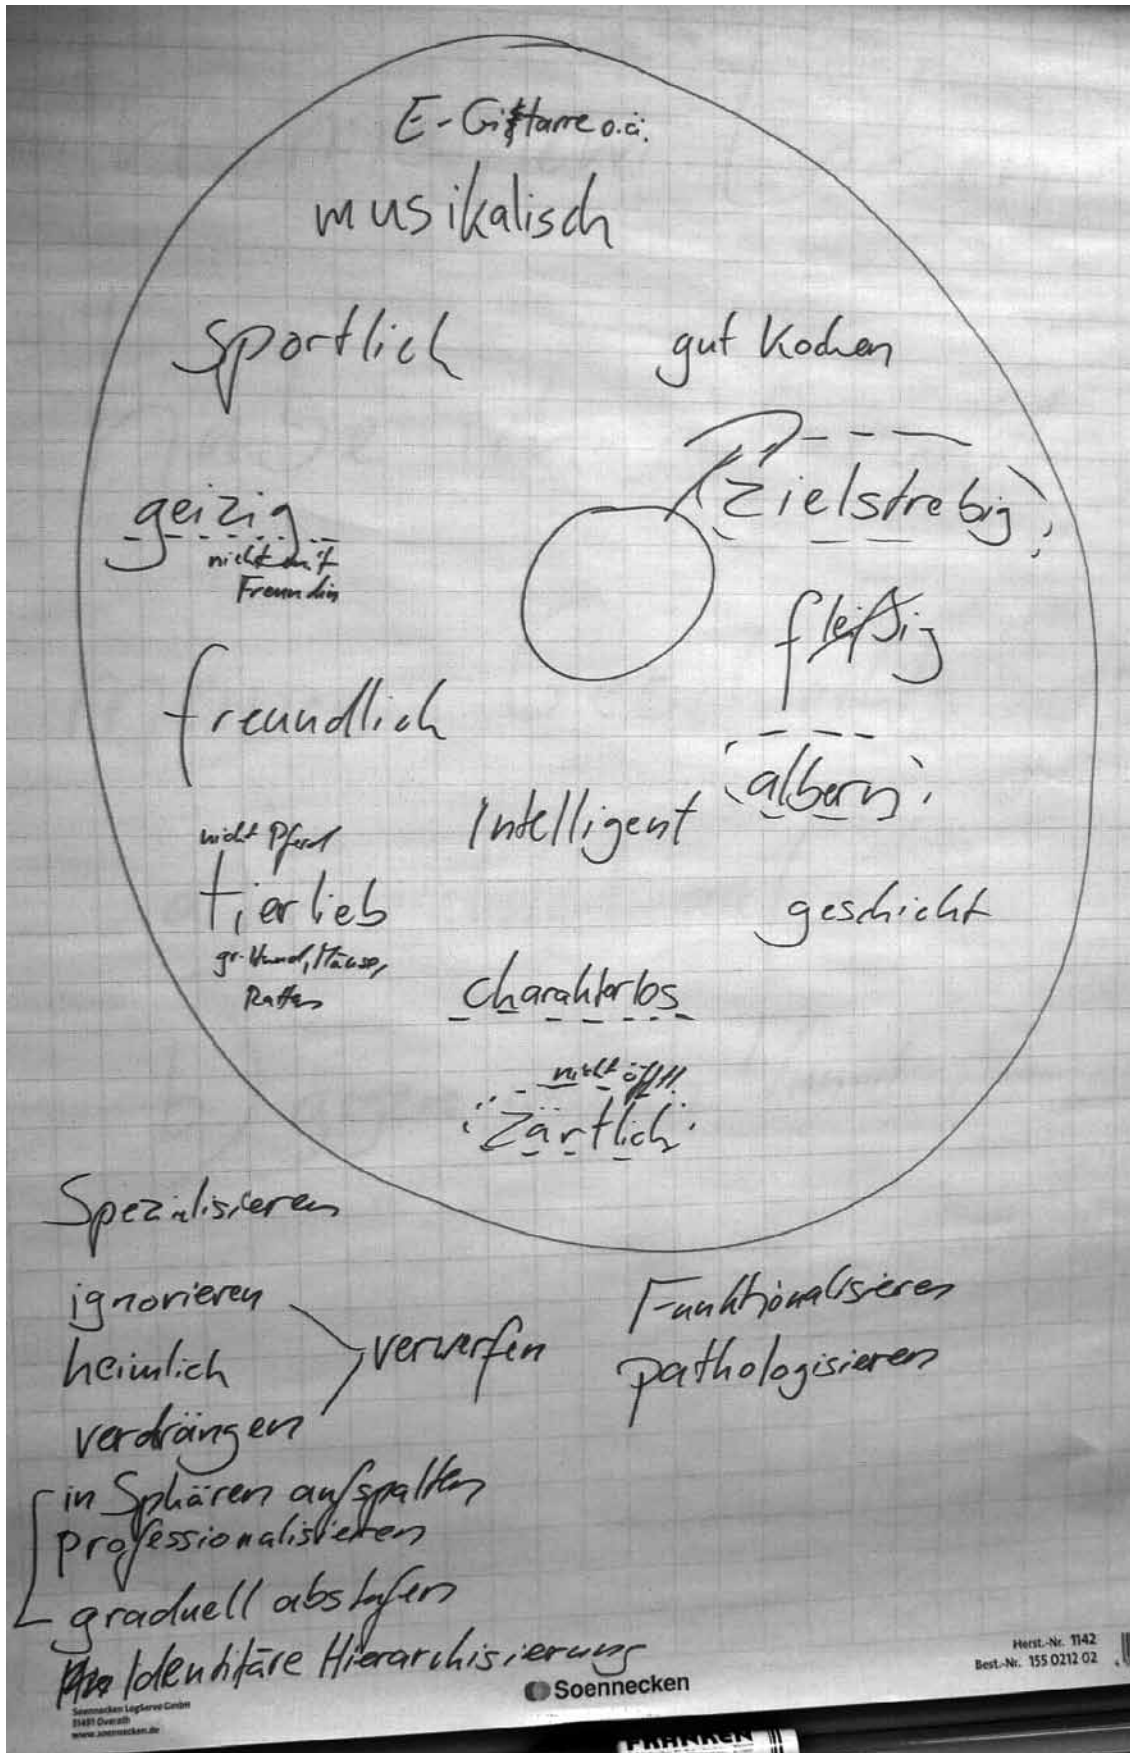 E-Gitarre o.ä.
musikalisch
sportlich
gut kochen
geizig
nicht mit
Freundin
zielstrebig
fleißig
freundlich
albern
Intelligent
nicht Pferd
tierlieb
gr. Hund, Mäuse,
Ratten
geschickt
charakterlos
nicht öff!!
Zärtlich
Spezialisieren
ignorieren
heimlich
verdrängen
verwerfen
Funktionalisieren
pathologisieren
in Sphären aufspalten
professionalisieren
graduell abstufen
Identitäre Hierarchisierung
Soennecken LogServe GmbH
51491 Overath
www.soennecken.de
Soennecken
Herst.-Nr. 1142
Best.-Nr. 155 0212 02
FRANKEN